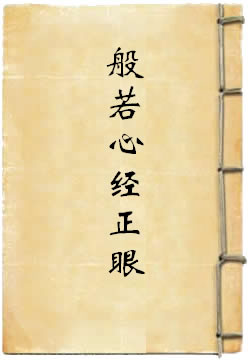 般若心经正眼